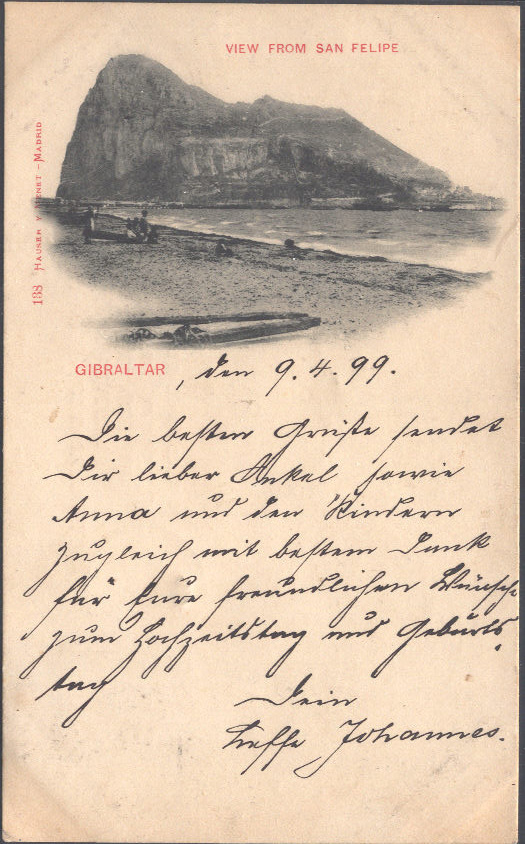 VIEW FROM SAN FELIPE
138 HAUSER Y MENET - MADRID
GIBRALTAR , den 9. 4. 99.
Die besten Grüße sendet
Dir lieber Onkel sowie
Anna und den Kindern
zugleich mit bestem Dank
für Eure freundlichen Wünsche
zum Hochzeitstag und Geburts-
tag
Dein
Neffe Johannes.